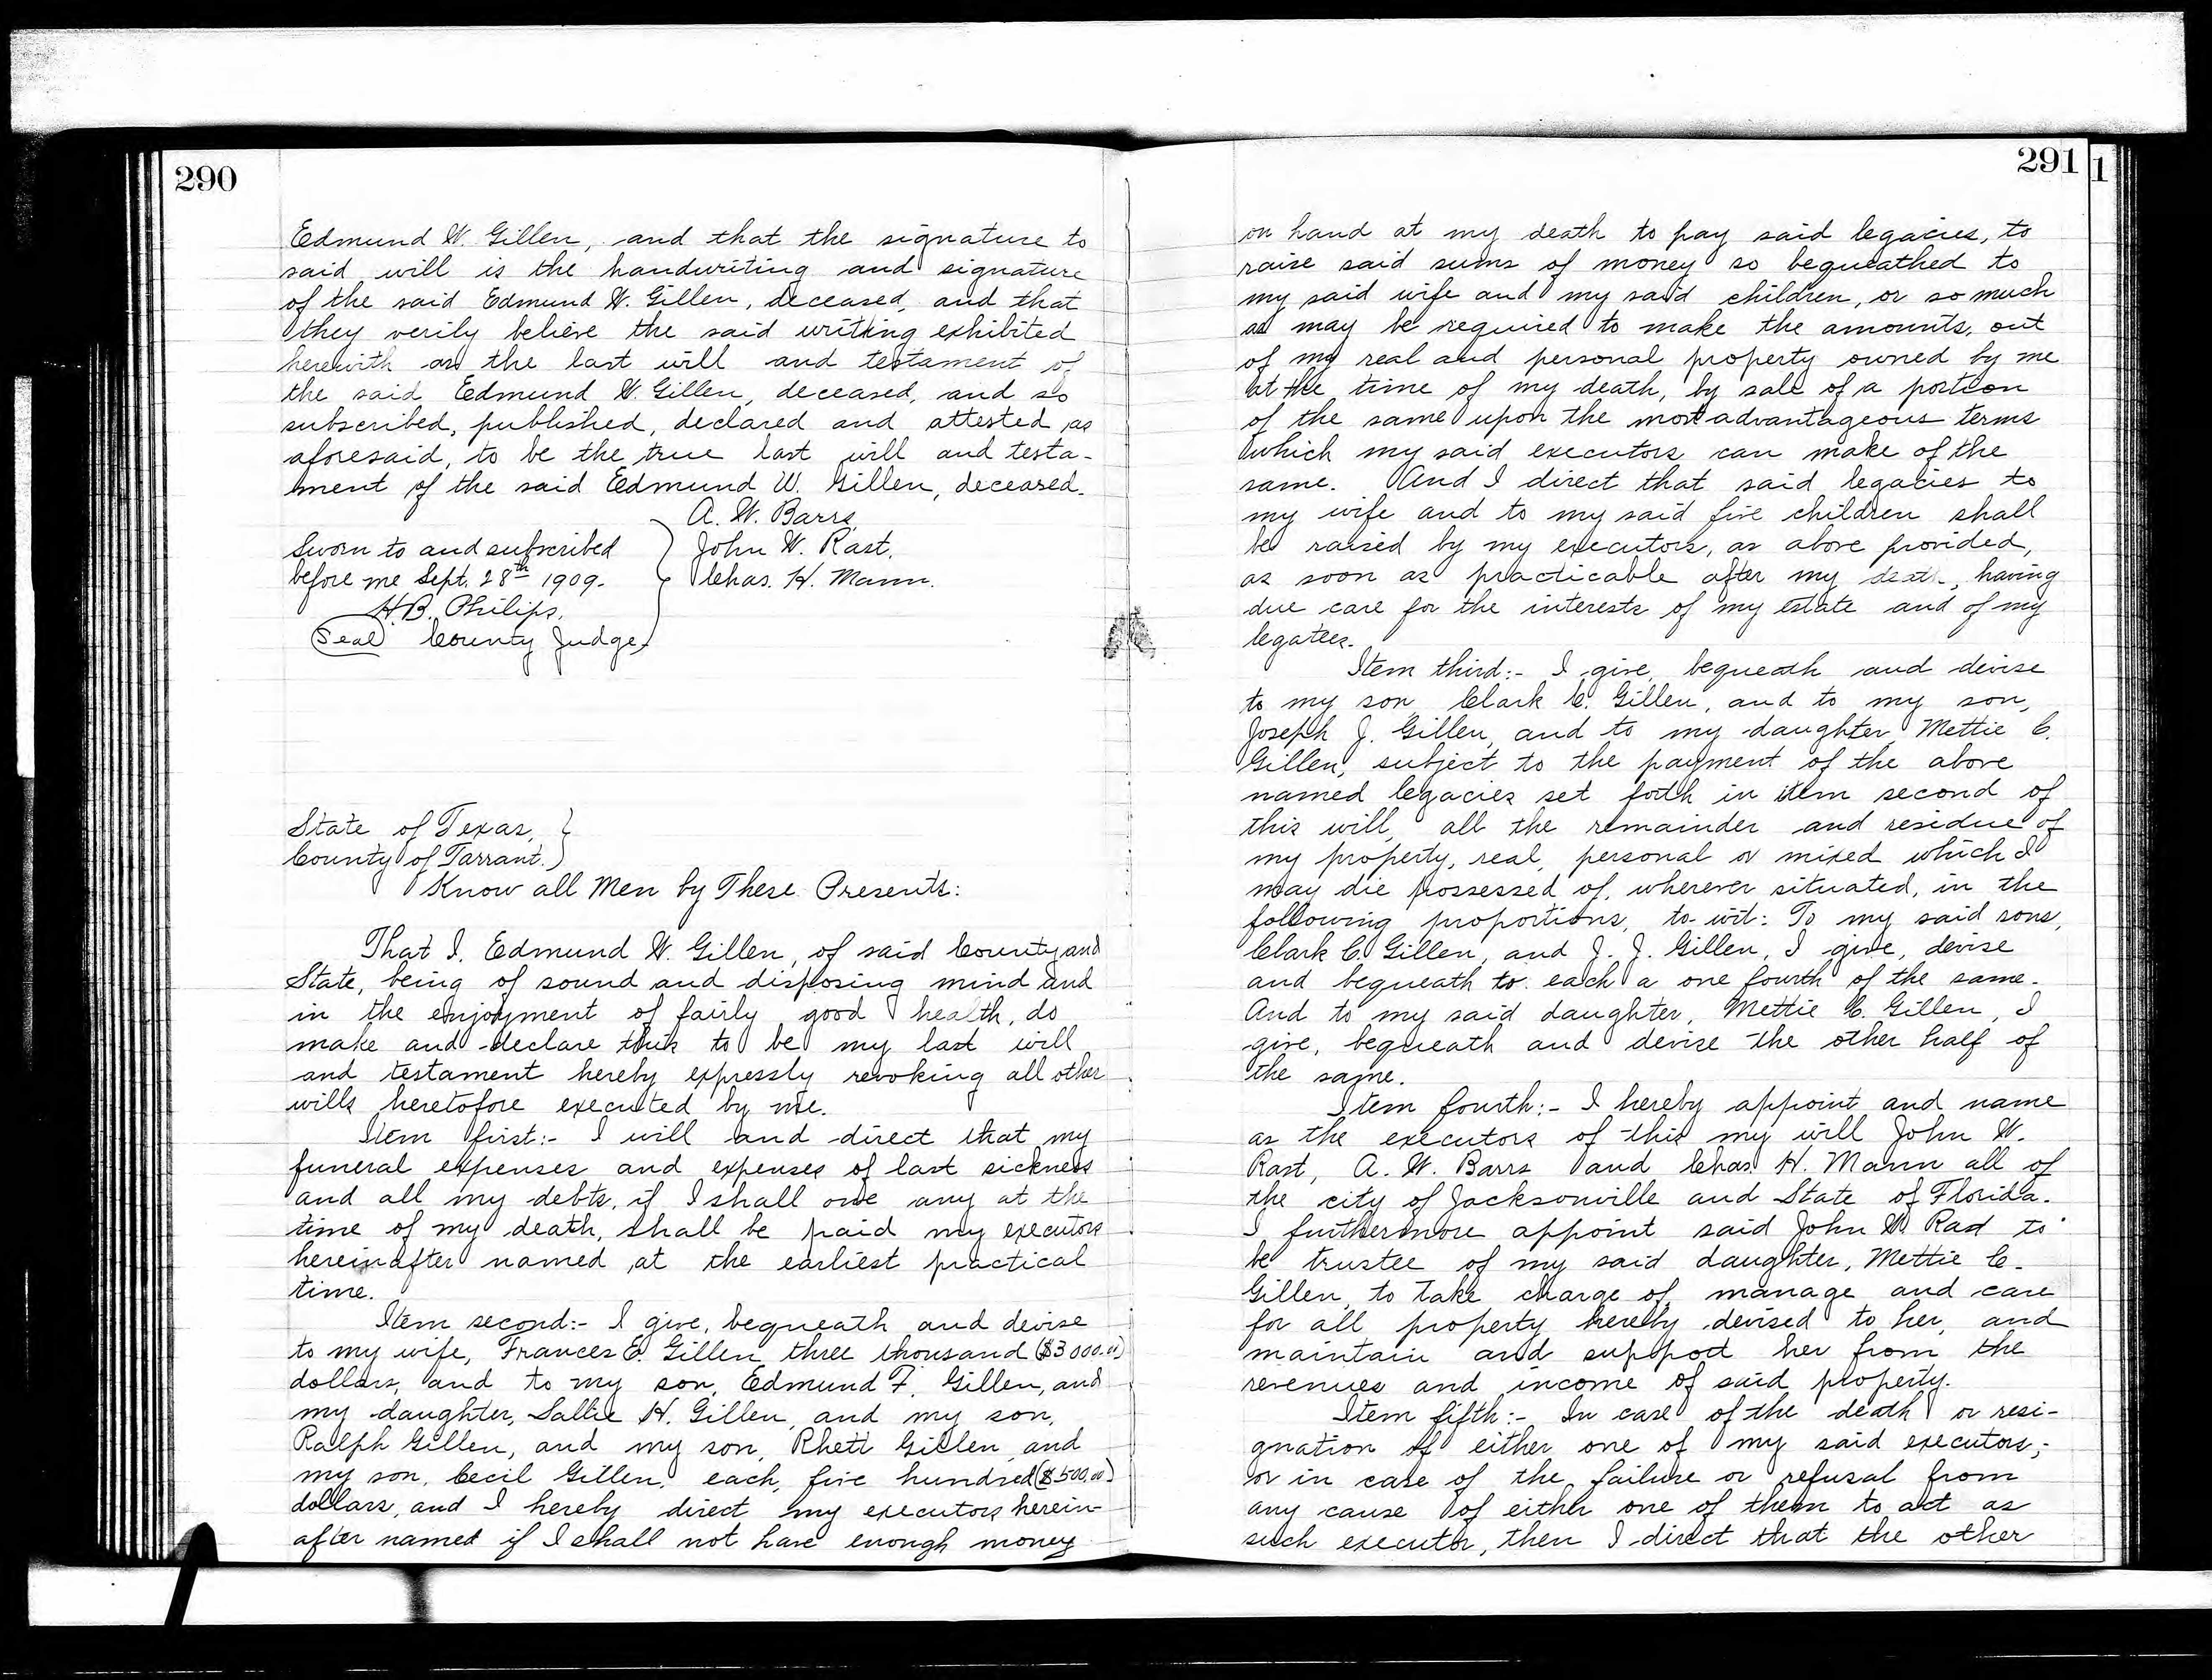 290
Edmund W. Gillen, and that the signature to
said will is the handwriting and signature
of the said Edmund W. Gillen, deceased, and that
they verily believe the said writing exhibited
herewith as the last will and testament of
the said Edmund W. Gillen, deceased, and so
subscribed, published, declared and attested as
aforesaid, to be the true last will and testa-
ment of the said Edmund W. Gillen, deceased.
A. W. Barrs.
Sworn to and subscribed John W. Rast.
before me Sept. 28th 1909. Chas. H. Mann.
H.B. Philips.
Seal County Judge.
State of Texas,
County of Tarrant.
Know all Men by These Presents:
That I, Edmund W. Gillen, of said County and
State, being of sound and disposing mind and
in the enjoyment of fairly good health, do
make and declare this to be my last will
and testament hereby expressly revoking all other
wills heretofore executed by me.
Item first:- I will and direct that my
funeral expenses and expenses of last sickness
and all my debts, if I shall owe any at the
time of my death, shall be paid my executors
hereinafter named, at the earliest practical
time.
Item second:- I give, bequeath and devise
to my wife, Frances E. Gillen three thousand ($3000.00)
dollars, and to my son, Edmund F. Gillen, and
my daughter, Sallie H. Gillen, and my son,
Ralph Gillen, and my son, Rhett Gillen, and
my son, Cecil Gillen, each, five hundred ($500.00)
dollars, and I hereby direct my executors herein-
after named if I shall not have enough money
291
1
on hand at my death to pay said legacies, to
raise said sums of money so bequeathed to
my said wife and my said children, or so much
as may be required to make the amounts, out
of my real and personal property owned by me
at the time of my death, by sale of a portion
of the same upon the most advantageous terms
which my said executors can make of the
same. And I direct that said legacies to
my wife and to my said five children shall
be raised by my executors, as above provided,
as soon as practicable after my death, having
due care for the interests of my estate and of my
legatees.
Item third:- I give, bequeath and devise
to my son, Clark C. Gillen, and to my son,
Joseph J. Gillen, and to my daughter, Mettie C.
Gillen, subject to the payment of the above
named legacies set forth in item second of
this will, all the remainder and residue of
my property, real, personal or mixed which I
may die possessed of, wherever situated, in the
following proportions, to-wit: To my said sons,
Clark C. Gillen, and J. J. Gillen, I give, devise
and bequeath to each a one fourth of the same.
And to my said daughter, Mettie C. Gillen, I
give, bequeath and devise the other half of
the same.
Item fourth:- I hereby appoint and name
as the executors of this my will John W.
Rast, A. W. Barrs and Chas. H. Mann all of
the city of Jacksonville and State of Florida.
I furthermore appoint said John W. Rast to
be trustee of my said daughter, Mettie C.
Gillen, to take charge of, manage and care
for all property hereby devised to her, and
maintain and support her from the
revenues and income of said property.
Item fifth:- In case of the death or resi-
gnation of either one of my said executors,-
or in case of the failure or refusal from
any cause of either one of them to act as
such executor, then I direct that the other